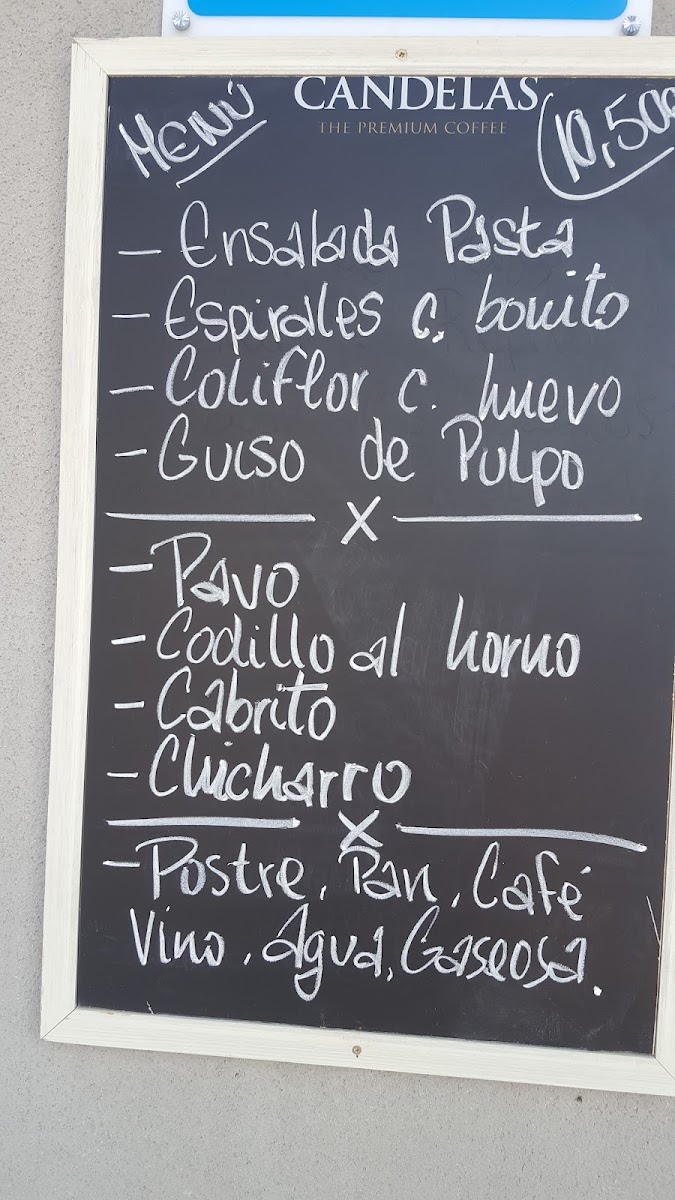 CANDELAS
THE PREMIUM COFFEE
MENÚ
10,50€
- Ensalada Pasta
- Espirales c. bonito
- Coliflor c. huevo
- Guiso de Pulpo
x
- Pavo
- Codillo al horno
- Cabrito
- Chicharro
x
- Postre, Pan, Café
Vino, Agua, Gaseosa.